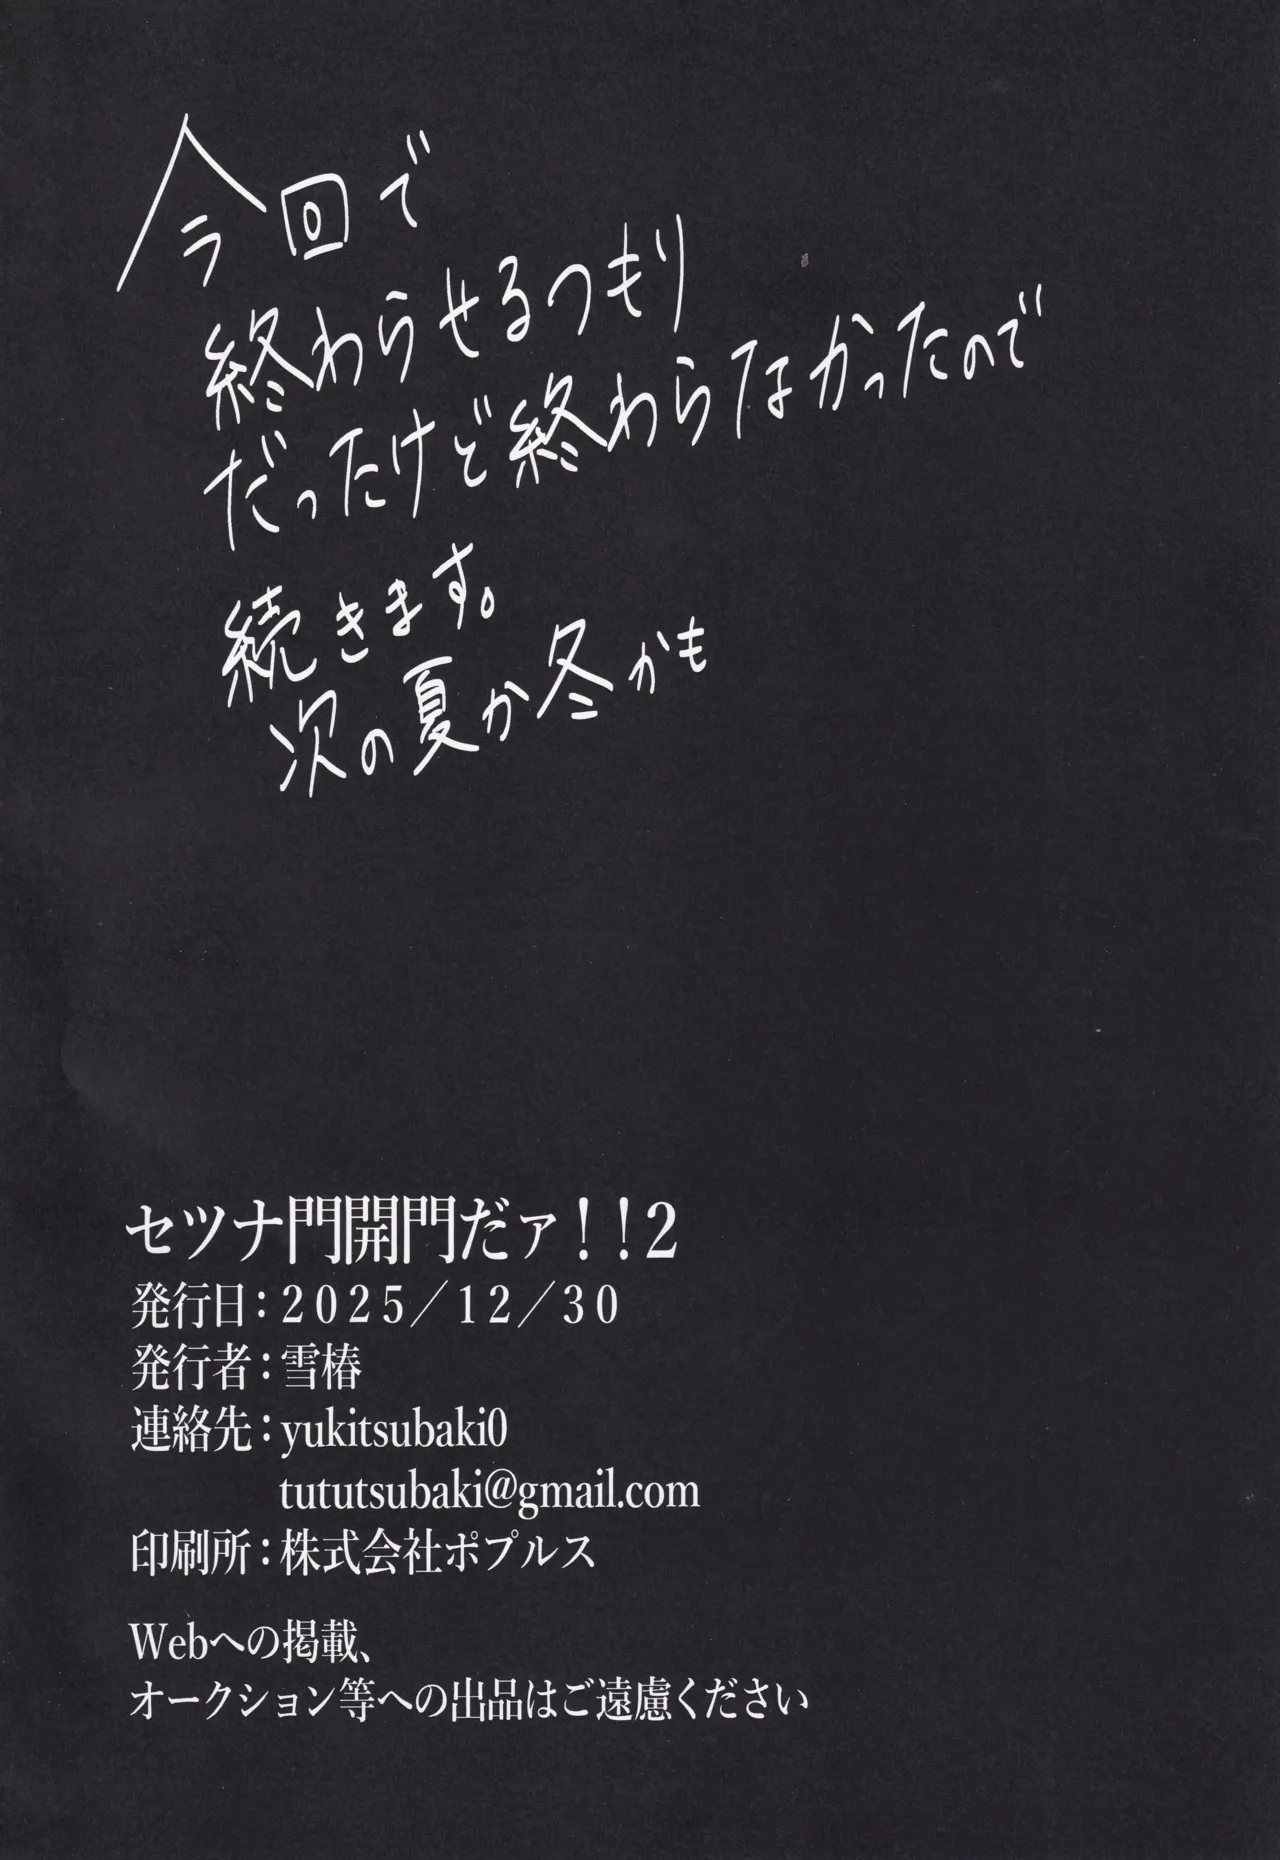 今回で
終わらせるつもり
だったけど終わらなかったので
続きます。
次の夏か冬かも
セツナ門開門だァ！！2
発行日：2025／12／30
発行者：雪椿
連絡先：yukitsubaki0
tututsubaki@gmail.com
印刷所：株式会社ポプルス
Webへの掲載、
オークション等への出品はご遠慮ください